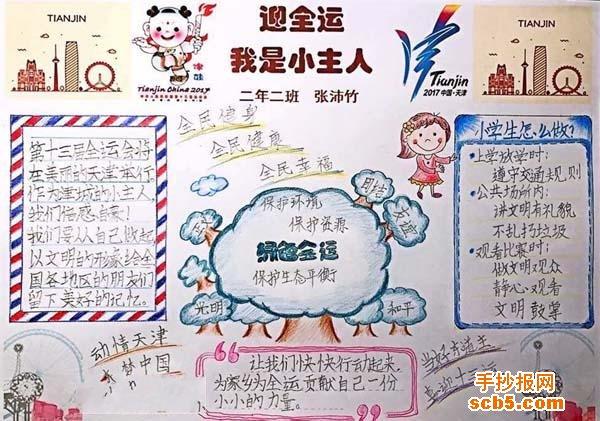 TIANJIN
津娃
Tianjin China 2017
迎全运
我是小主人
二年二班 张沛竹
Tianjin
2017中国·天津
TIANJIN
全民健身
全民健康
全民幸福
第十三届全运会将
在美丽的天津举行
作为津城的小主人,
我们倍感自豪!
我们要从自己做起,
以文明的形象给全
国各地区的朋友们
留下美好的记忆。
保护环境
保护资源
绿色全运
保护生态平衡
团结
友谊
光明
和平
小学生怎么做?
·上学放学时:
遵守交通规则
·公共场所内:
讲文明有礼貌
不乱扔垃圾
·观看比赛时:
做文明观众
静心观看
文明鼓掌
动情天津
梦中国
让我们快快行动起来,
为家乡为全运贡献自己一份
小小的力量。
当好东道主
喜迎十三
手抄报网
scb5.com